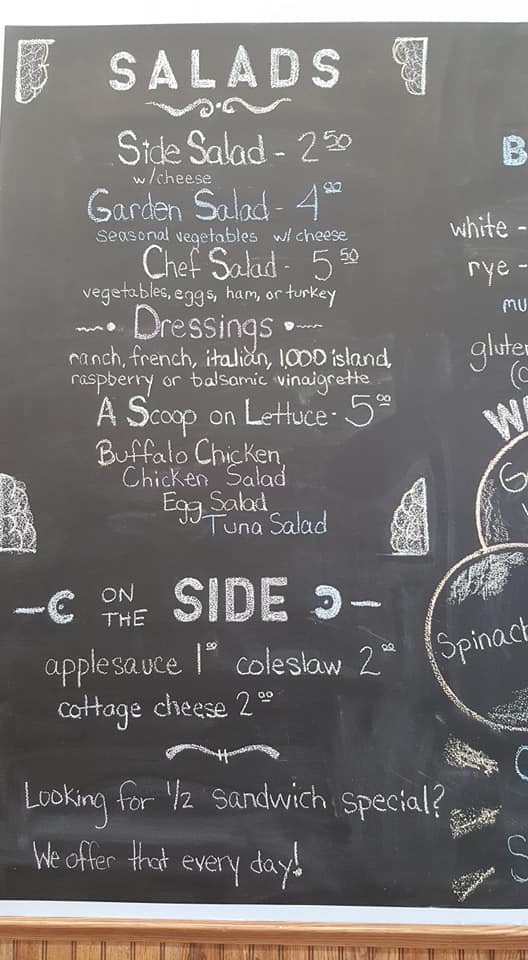 SALADS
Side Salad - 2 50
w/cheese
Garden Salad - 4 00
seasonal vegetables w/ cheese
Chef Salad - 5 50
vegetables, eggs, ham, or turkey
Dressings
ranch, french, italian, 1,000 island,
raspberry or balsamic vinaigrette
A Scoop on Lettuce - 5 00
Buffalo Chicken
Chicken Salad
Egg Salad
Tuna Salad
ON THE SIDE
applesauce 1 00 coleslaw 2 00
cottage cheese 2 00
Looking for 1/2 sandwich special?
We offer that every day!
B
white -
rye -
mu
glute
(
W
G
Spinach
S